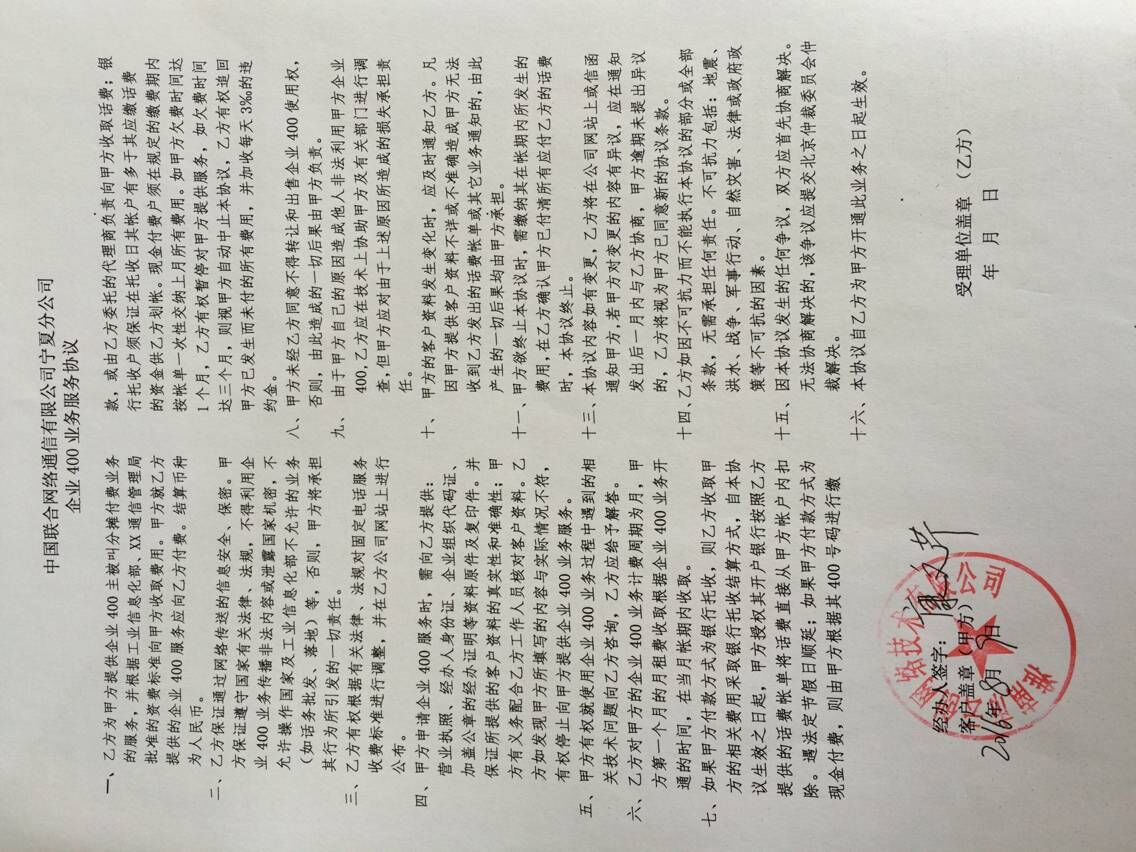 中国联合网络通信有限公司宁夏分公司
企业 400 业务服务协议
一、乙方为甲方提供企业 400 主被叫分摊付费业务
的服务，并根据工业信息化部、XX 通信管理局
批准的资费标准向甲方收取费用。甲方就乙方
提供的企业 400 服务应向乙方付费。结算币种
为人民币。
二、乙方保证通过网络传送的信息安全、保密。甲
方保证遵守国家有关法律、法规，不得利用企
业 400 业务传播非法内容或泄露国家机密，不
允许操作国家及工业信息化部不允许的业务
（如话务批发、落地）等，否则，甲方将承担
其行为所引发的一切责任。
三、乙方有权根据有关法律、法规对固定电话服务
收费标准进行调整，并在乙方公司网站上进行
公布。
四、甲方申请企业 400 服务时，需向乙方提供：
营业执照、经办人身份证、企业组织代码证、
加盖公章的经办证明等资料原件及复印件。并
保证所提供的客户资料的真实性和准确性；甲
方有义务配合乙方工作人员核对客户资料。乙
方如发现甲方所填写的内容与实际情况不符，
有权停止向甲方提供企业 400 业务服务。
五、甲方有权就使用企业 400 业务过程中遇到的相
关技术问题向乙方咨询，乙方应给予解答。
六、乙方对甲方的企业 400 业务计费周期为月，甲
方第一个月的月租费收取根据企业 400 业务开
通的时间，在当月帐期内收取。
七、如果甲方付款方式为银行托收，则乙方收取甲
方的相关费用采取银行托收结算方式，自本协
议生效之日起，甲方授权其开户银行按照乙方
提供的话费帐单将话费直接从甲方帐户内扣
除。遇法定节假日顺延；如果甲方付款方式为
现金付费，则由甲方根据其 400 号码进行缴
款，或由乙方委托的代理商负责向甲方收取话费；银
行托收户须保证在托收日其帐户有多于其应缴话费
的资金供乙方划帐。现金付费户须在规定的缴费期内
按帐单一次性交纳上月所有费用。如甲方欠费时间达
1 个月，乙方有权暂停对甲方提供服务，如欠费时间
达三个月，则视甲方自动中止本协议，乙方有权追回
甲方已发生而未付的所有费用，并加收每天 3‰的违
约金。
八、甲方未经乙方同意不得转让和出售企业 400 使用权，
否则，由此造成的一切后果由甲方负责。
九、由于甲方自己的原因造成他人非法利用甲方企业
400，乙方应在技术上协助甲方及有关部门进行调
查，但甲方应对由于上述原因所造成的损失承担责
任。
十、甲方的客户资料发生变化时，应及时通知乙方。凡
因甲方提供客户资料不详或不准确造成甲方无法
收到乙方发出的话费帐单或其它业务通知的，由此
产生的一切后果均由甲方承担。
十一、甲方欲终止本协议时，需缴纳其在帐期内所发生的
费用，在乙方确认甲方已付清所有应付乙方的话费
时，本协议终止。
十三、本协议内容如有变更，乙方将在公司网站上或信函
通知甲方，若甲方对变更的内容有异议，应在通知
发出后一月内与乙方协商，甲方逾期未提出异议
的，乙方将视为甲方已同意新的协议条款。
十四、乙方如因不可抗力而不能执行本协议的部分或全部
条款，无需承担任何责任。不可抗力包括：地震、
洪水、战争、军事行动、自然灾害、法律或政府政
策等不可抗的因素。
十五、因本协议发生的任何争议，双方应首先协商解决。
无法协商解决的，该争议应提交北京仲裁委员会仲
裁解决。
十六、本协议自乙方为甲方开通此业务之日起生效。
经办人签字：
客户盖章（甲方）
2016年 8月 日
受理单位盖章（乙方）
年 月 日